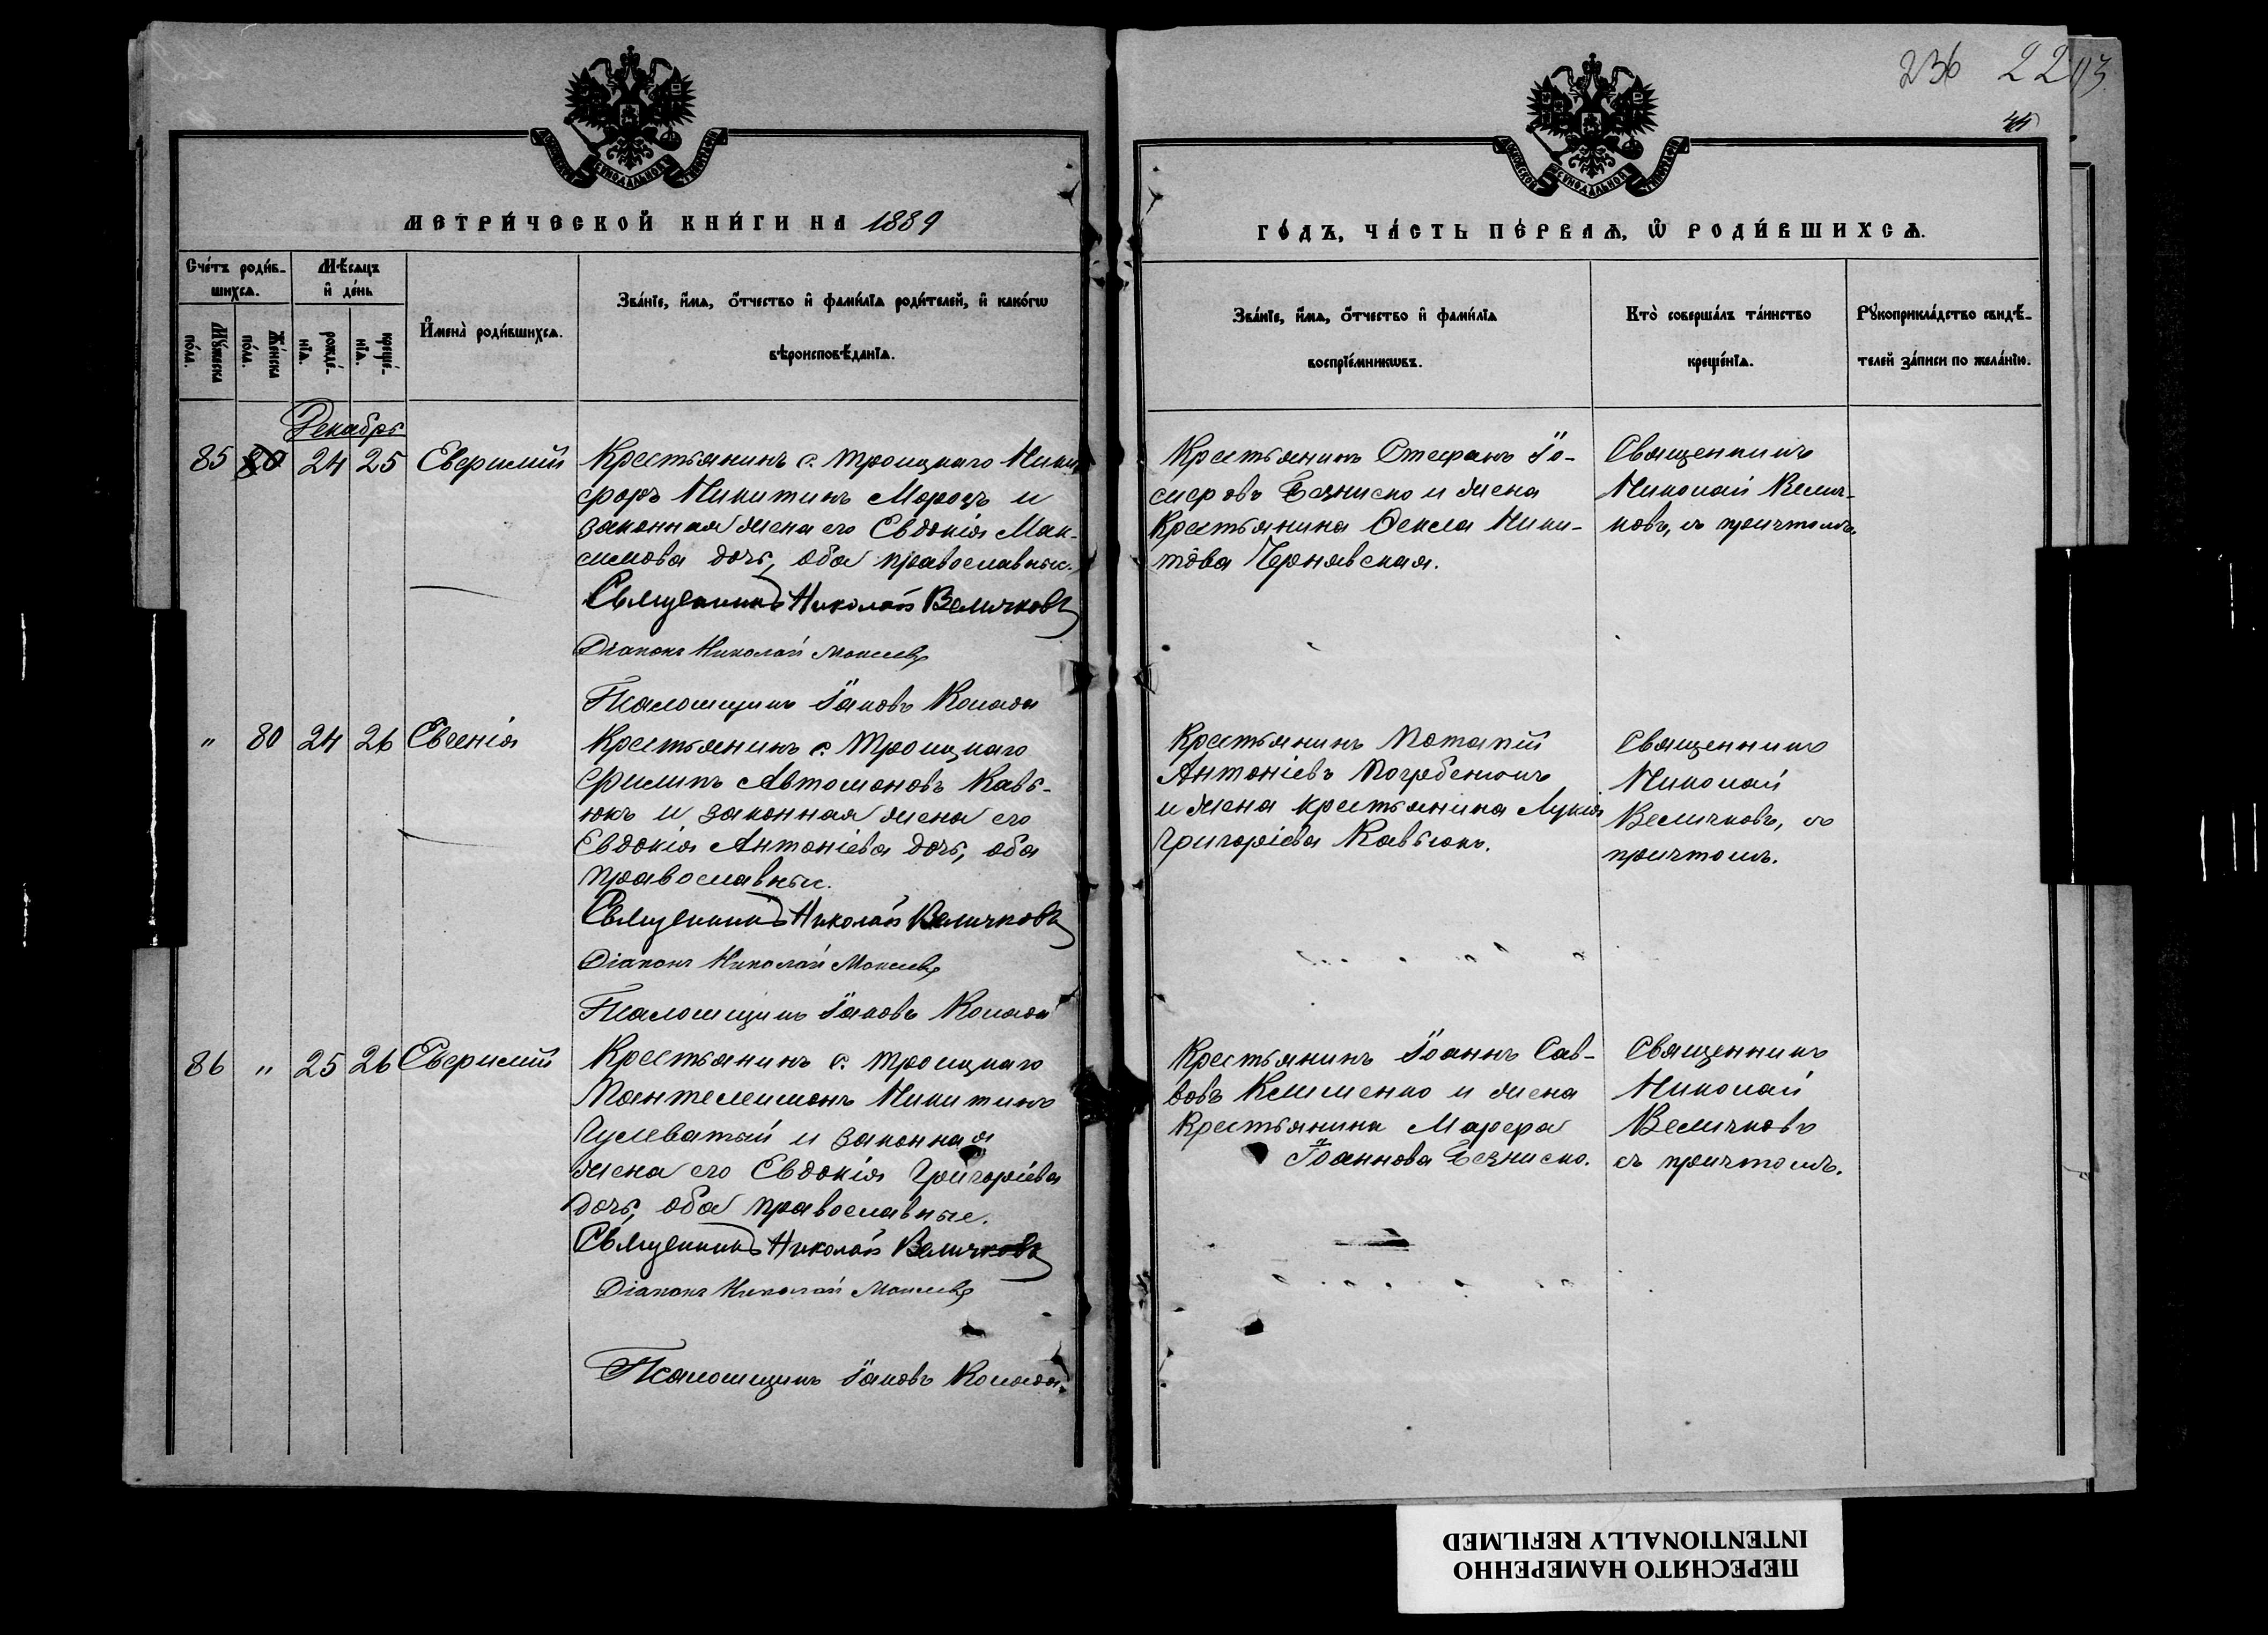 236 2293
44
МЕТРИ́ЧЕСКОЙ КНИ́ГИ НА 1889
ГО́ДЪ, ЧА́СТЬ ПЕ́РВАѦ, Ѡ РОДИ́ВШИХСѦ.
Сче́тъ роди́в-
шихсѧ.
Мѣ́сѧцъ
и҆ де́нь
Мꙋ́жеска
по́ла.
Же́нска
по́ла.
рожде́-
нїѧ.
креще́-
нїѧ.
И҆мена̀ роди́вшихсѧ.
Зва́нїе, и҆́мѧ, ѻ҆́тчество и҆ фами́лїѧ роди́телей, и҆ како́гѡ
вѣроисповѣ́данїѧ.
Зва́нїе, и҆́мѧ, ѻ҆́тчество и҆ фами́лїѧ
воспрїе́мникѡвъ.
Кто̀ соверша́лъ та́инство
креще́нїѧ.
Рꙋкоприкла́дство свидѣ́-
телей за́писи по жела́нїю.
Декабрь
85 80 24 25 Евфимий
Крестьянинъ с. Троицкаго Ники-
форъ Никитинъ Морозъ и
законная жена его Евдокія Мак-
симова дочь, оба православные.
Священникъ Николай Величковъ
Діаконъ Николай Моисеевъ
Псаломщикъ Іаковъ Колада
Крестьянинъ Стефанъ Іо-
сифовъ Безниско и жена
Крестьянина Фекла Ники-
това Чернявская.
Священникъ
Николай Велич-
ковъ, съ причтомъ.
" 80 24 26 Евгенія
Крестьянинъ с. Троицкаго
Филипъ Автомоновъ Кавь-
юкъ и законная жена его
Евдокія Антоніева дочь, оба
православные.
Священникъ Николай Величковъ
Діаконъ Николай Моисеевъ
Псаломщикъ Іаковъ Колада
Крестьянинъ Потапій
Антоніевъ Погребенюкъ
и жена крестьянина Лукія
Григоріева Кавьюкъ.
Священникъ
Николай
Величковъ, съ
причтомъ.
86 " 25 26 Евфимий
Крестьянинъ с. Троицкаго
Пантелеимонъ Никитинъ
Гулеватый и законная
жена его Евдокія Григоріева
дочь, оба православные.
Священникъ Николай Величковъ
Діаконъ Николай Моисеевъ
Псаломщикъ Іаковъ Колада.
Крестьянинъ Іоаннъ Сав-
вовъ Клименко и жена
Крестьянина Марфа
Іоаннова Безниско.
Священникъ
Николай
Величковъ
съ причтомъ.
ПЕРЕСНЯТО НАМЕРЕННО
INTENTIONALLY REFILMED